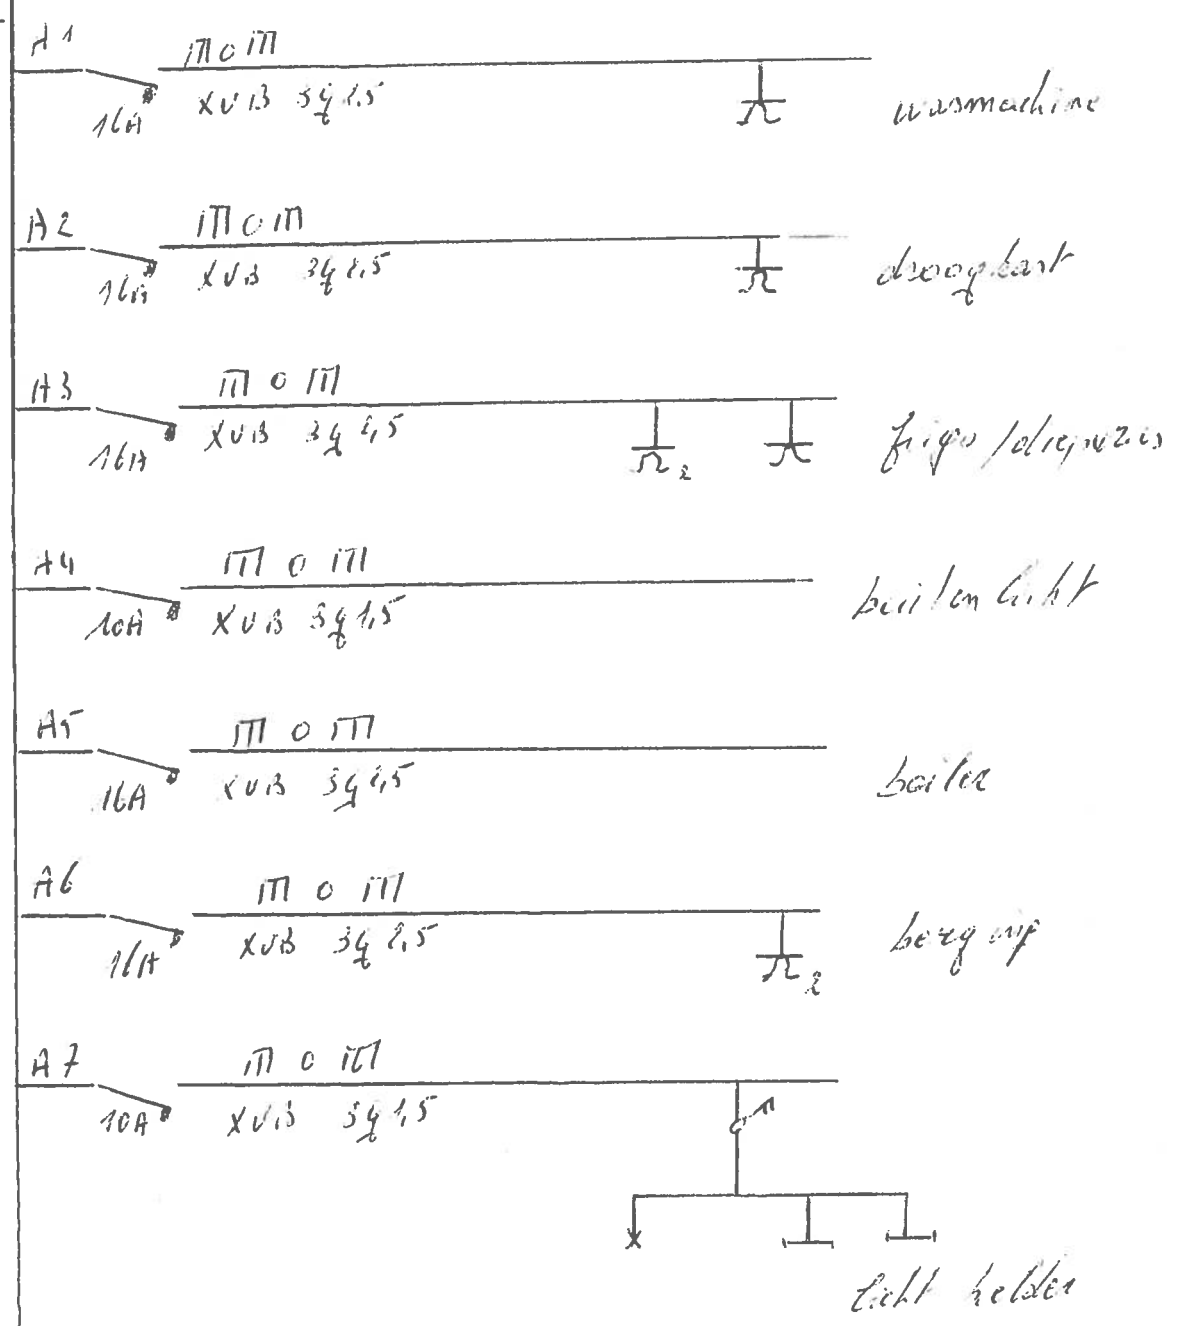 A1
16A
XVB 3g 2,5
wasmachine
A2
16A
XVB 3g 2,5
droogkast
A3
16A
XVB 3g 2,5
2
frigo / diepvries
A4
10A
XVB 3g 1,5
buitenlicht
A5
16A
XVB 3g 2,5
boiler
A6
16A
XVB 3g 2,5
2
berging
A7
10A
XVB 3g 1,5
licht kelder